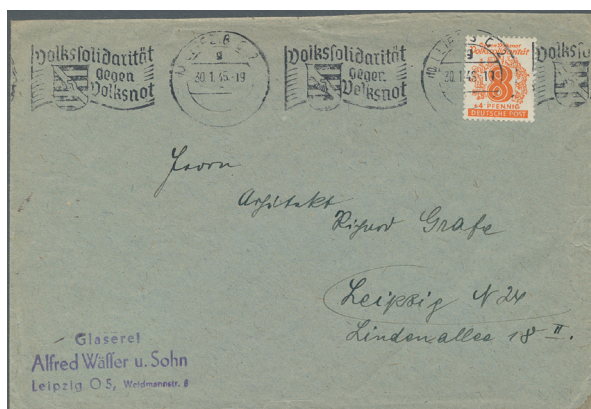 Volkssolidarität
gegen
Volksnot
(10) LEIPZIG C 2
g
30.1.46.-19
Volkssolidarität
gegen
Volksnot
(10) LEIPZIG C 2
g
30.1.46.-19
Volkssolidarität
8
+4 PFENNIG
DEUTSCHE POST
Volksso
Vo
Herrn
Architekt
Richard Grafe
Leipzig N 24
Lindenallee 18 II.
Glaserei
Alfred Wäller u. Sohn
Leipzig O 5, Weidmannstr. 8